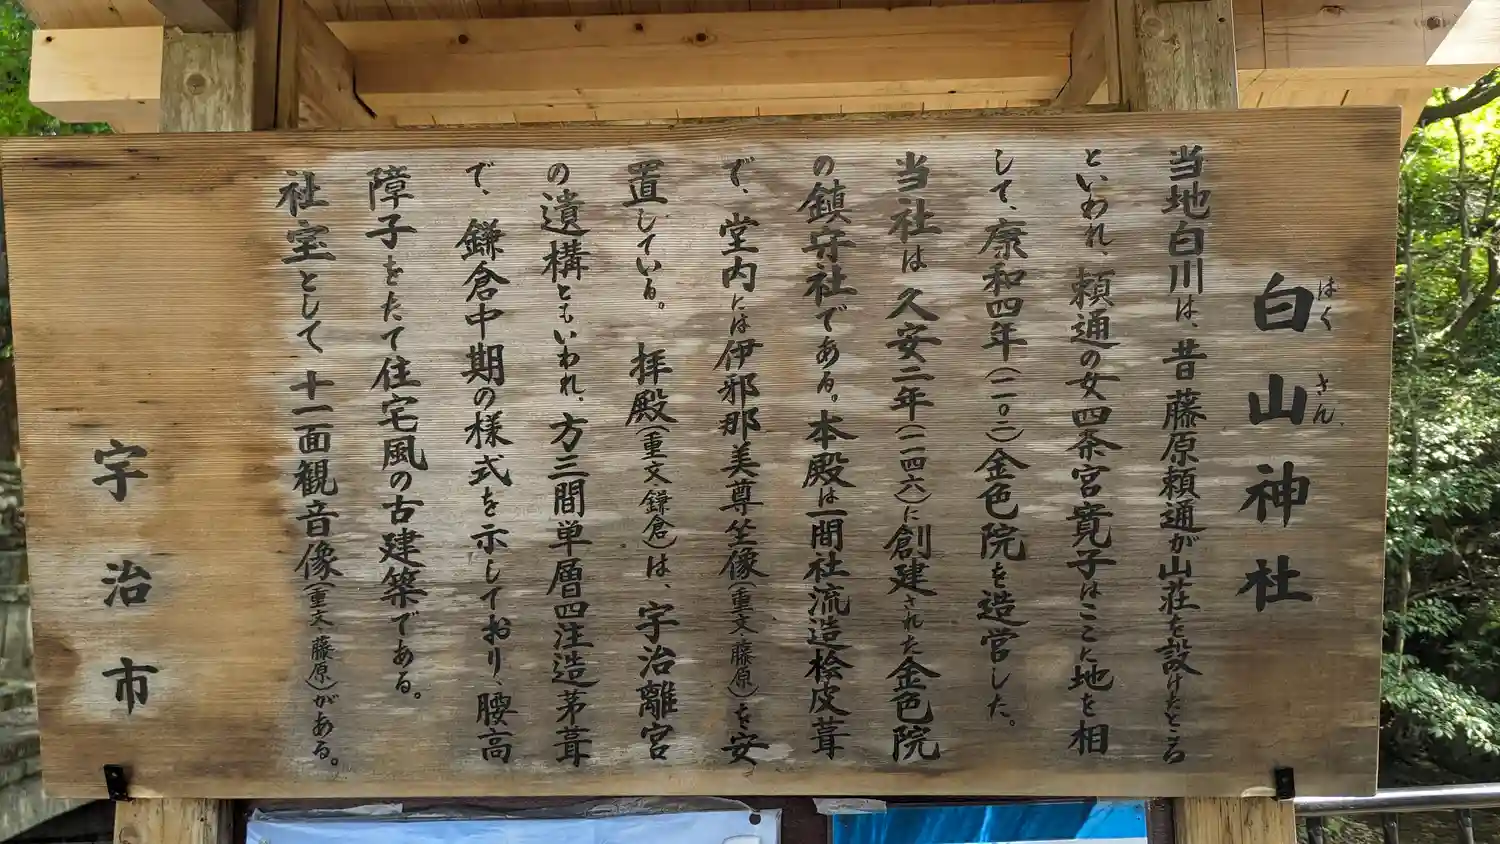 白山神社
はくさん
当地白川は、昔藤原頼通が山荘を設けたところ
といわれ、頼通の女四条宮寛子はここに地を相
して、康和四年(一一〇二)金色院を造営した。
当社は久安二年(一一四六)に創建された金色院
の鎮守社である。本殿は一間社流造桧皮葺
で、堂内には伊邪那美尊坐像(重文・藤原)を安
置している。拝殿(重文鎌倉)は、宇治離宮
の遺構ともいわれ、方三間単層四注造茅葺
で、鎌倉中期の様式を示しており、腰高
障子をたて住宅風の古建築である。
社宝として十一面観音像(重文藤原)がある。
宇治市